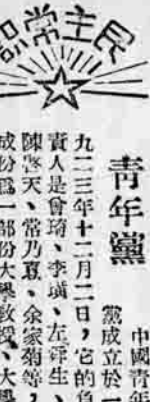 民主常識
青年黨
中國青年
黨成立於一
九二三年十二月二日，它的負
責人是曾琦、李璜、左舜生、
陳啓天、常乃惪、余家菊等，
成份爲一部份大學教授、大學